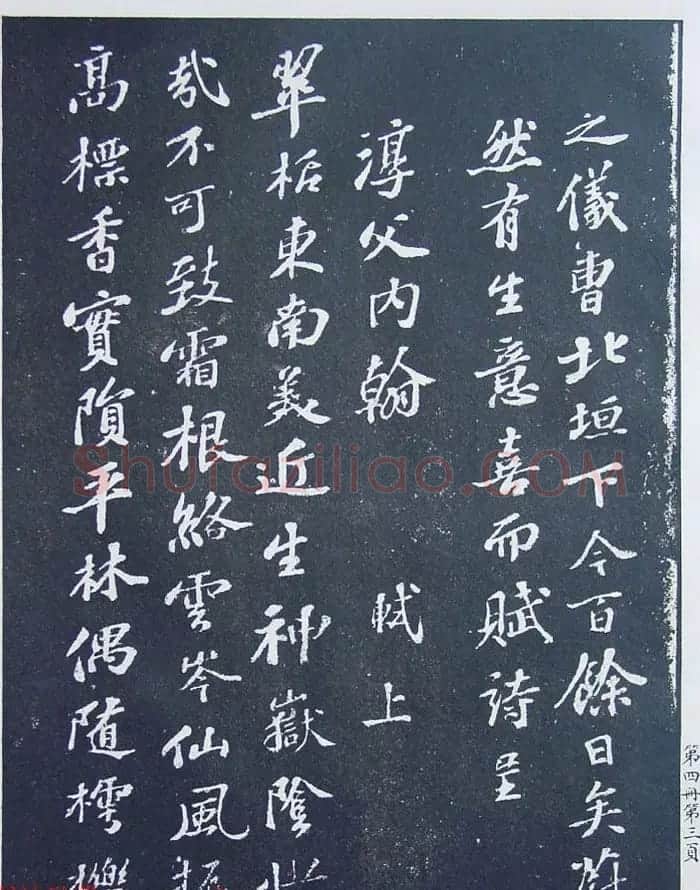 之儀曹北垣下今百餘日矣蔚
然有生意喜而賦詩呈
淳父内翰 軾上
翠栝東南美近生神嶽陰惜
哉不可致霜根絡雲岑仙風振
高標香實隕平林偶隨樗櫟
第四冊第三頁
Shufaziliao.COM